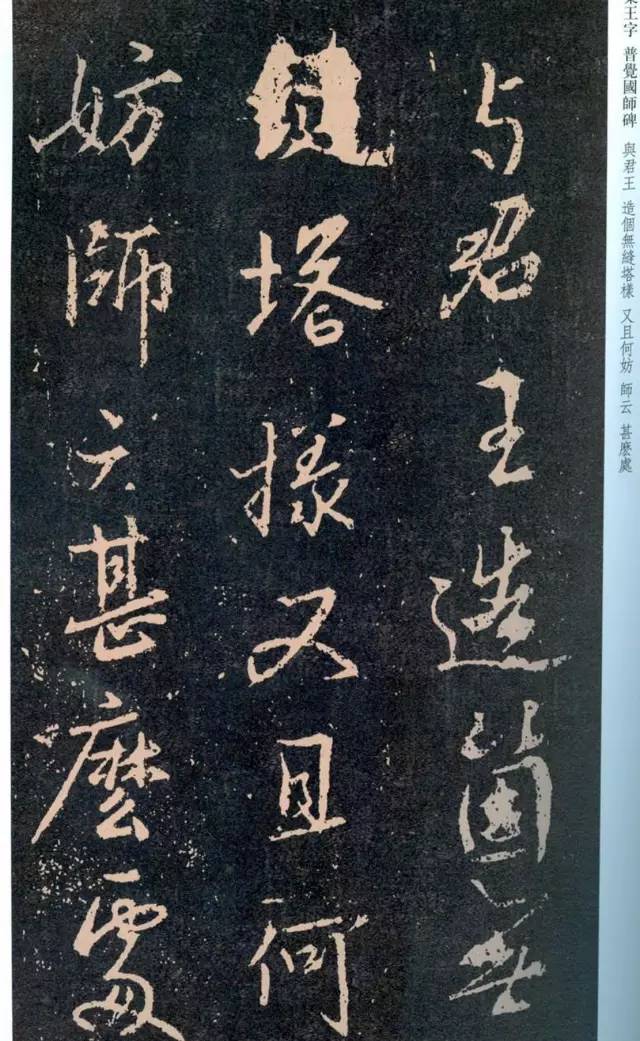 集王字 普覺國師碑 與君王 造個無縫塔樣 又且何妨 師云 甚麽處
与君王造箇無
縫塔樣又且何
妨師云甚麼處